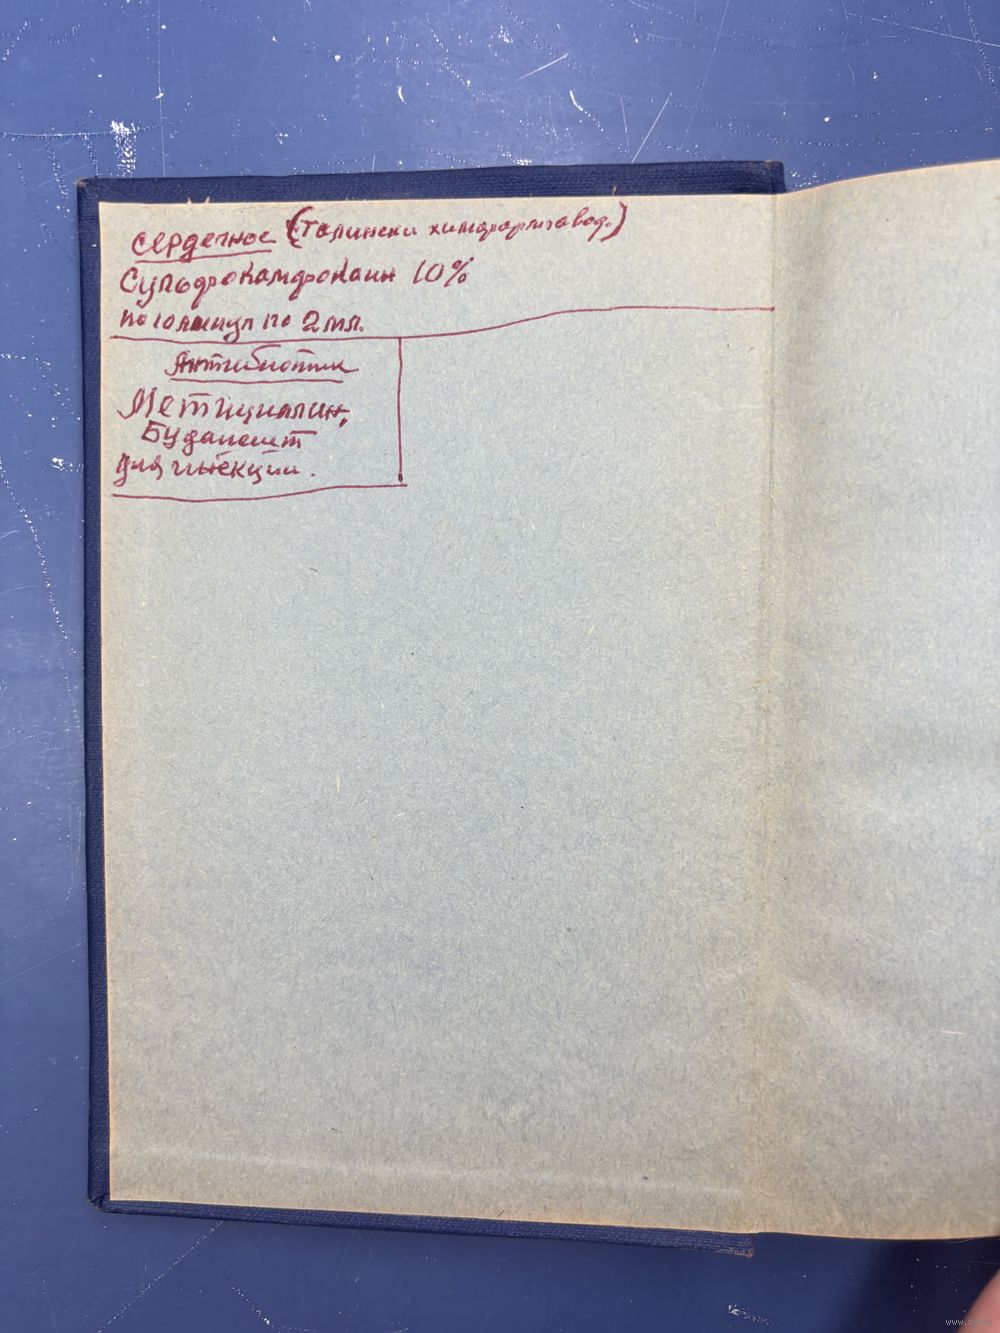 Сердечное (Талински химфармзавод.)
Сульфокамфокаин 10%
по 10 ампул по 2 мл.
Антибиотик
Метициллин,
Будапешт
для инъекции.